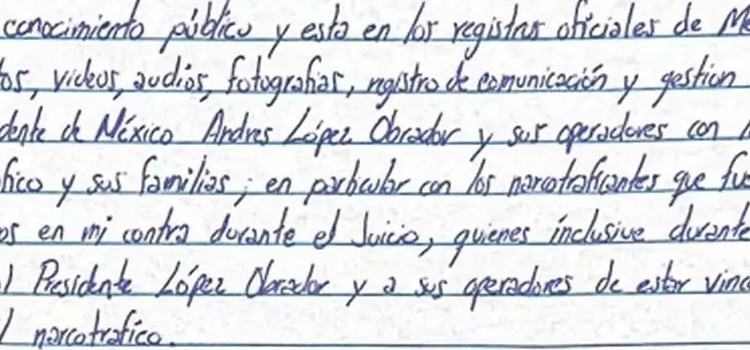 conocimiento público y esta en los registros oficiales de Mé
tos, videos, audios, fotografías, registro de comunicación y gestion
dente de México Andres López Obrador y sus operadores con
fico y sus familias; en particular con los narcotraficantes que fue
os en mi contra durante el Juicio, quienes inclusive durante
l Presidente López Obrador y a sus operadores de estar vinc
l narcotrafico.